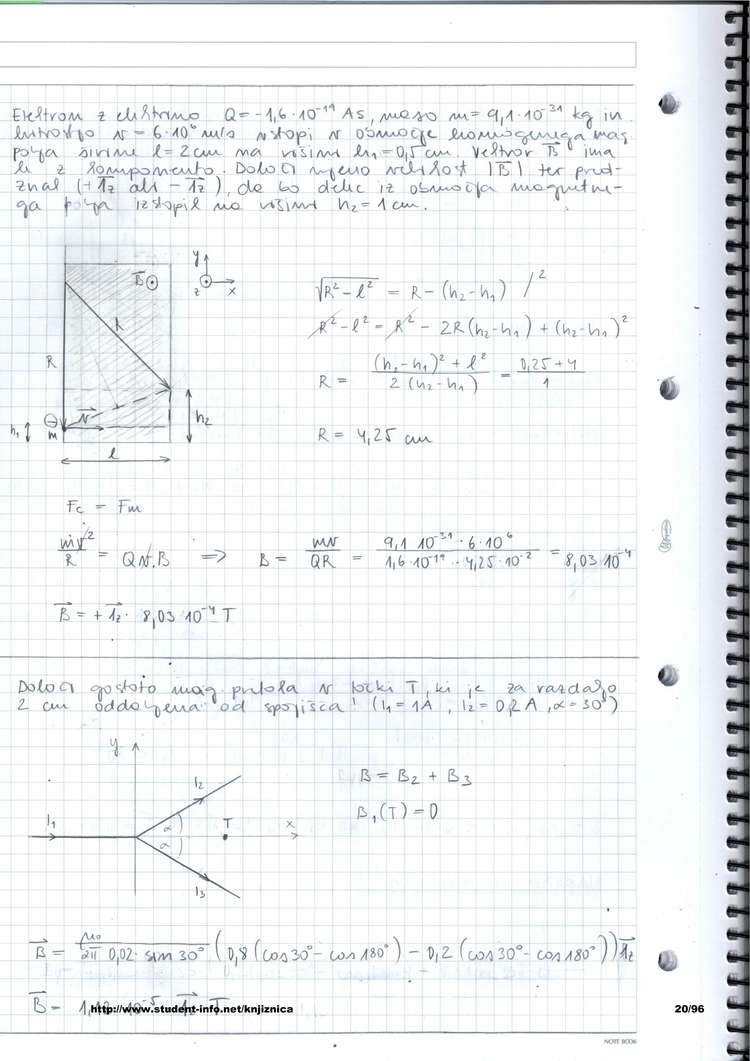 Elektron z elektrino Q = -1,6 · 10⁻¹⁹ As, maso m = 9,1 · 10⁻³¹ kg in
hitrostjo v = 6 · 10⁶ m/s vstopi v območje homogenega mag.
polja širine l = 2 cm na višini h₁ = 0,5 cm. Vektor B⃗ ima
le z komponento. Določi njeno velikost |B⃗| ter pred-
znak (+1⃗z ali -1⃗z), da bo delec iz območja magnetne-
ga polja izstopil na višini h₂ = 1 cm.
B⃗ ⊙
y
z x
R
v⃗
m
h₁
h₂
l
√(R² - l²) = R - (h₂ - h₁) /²
R² - l² = R² - 2R(h₂ - h₁) + (h₂ - h₁)²
R = ((h₂ - h₁)² + l²) / (2 (h₂ - h₁)) = (0,25 + 4) / 1
R = 4,25 cm
Fc = Fm
mv²/R = Qv.B ⇒ B = mv/QR = (9,1 10⁻³¹ · 6 · 10⁶) / (1,6 · 10⁻¹⁹ · 4,25 · 10⁻²) = 8,03 · 10⁻⁴
B⃗ = + 1⃗z · 8,03 10⁻⁴ T
Določi gostoto mag. pretoka v točki T, ki je za razdaljo
2 cm oddaljena od spojišča! (I₁ = 1A, I₂ = 0,2 A, α = 30°)
y
I₁
I₂
α
α
T
x
I₃
B = B₂ + B₃
B₁(T) = 0
B⃗ = μ₀ / (2π 0,02 · sin 30°) (0,8 (cos 30° - cos 180°) - 0,2 (cos 30° - cos 180°)) 1⃗z
http://www.student-info.net/knjiznica
20/96
NOTE BOOK